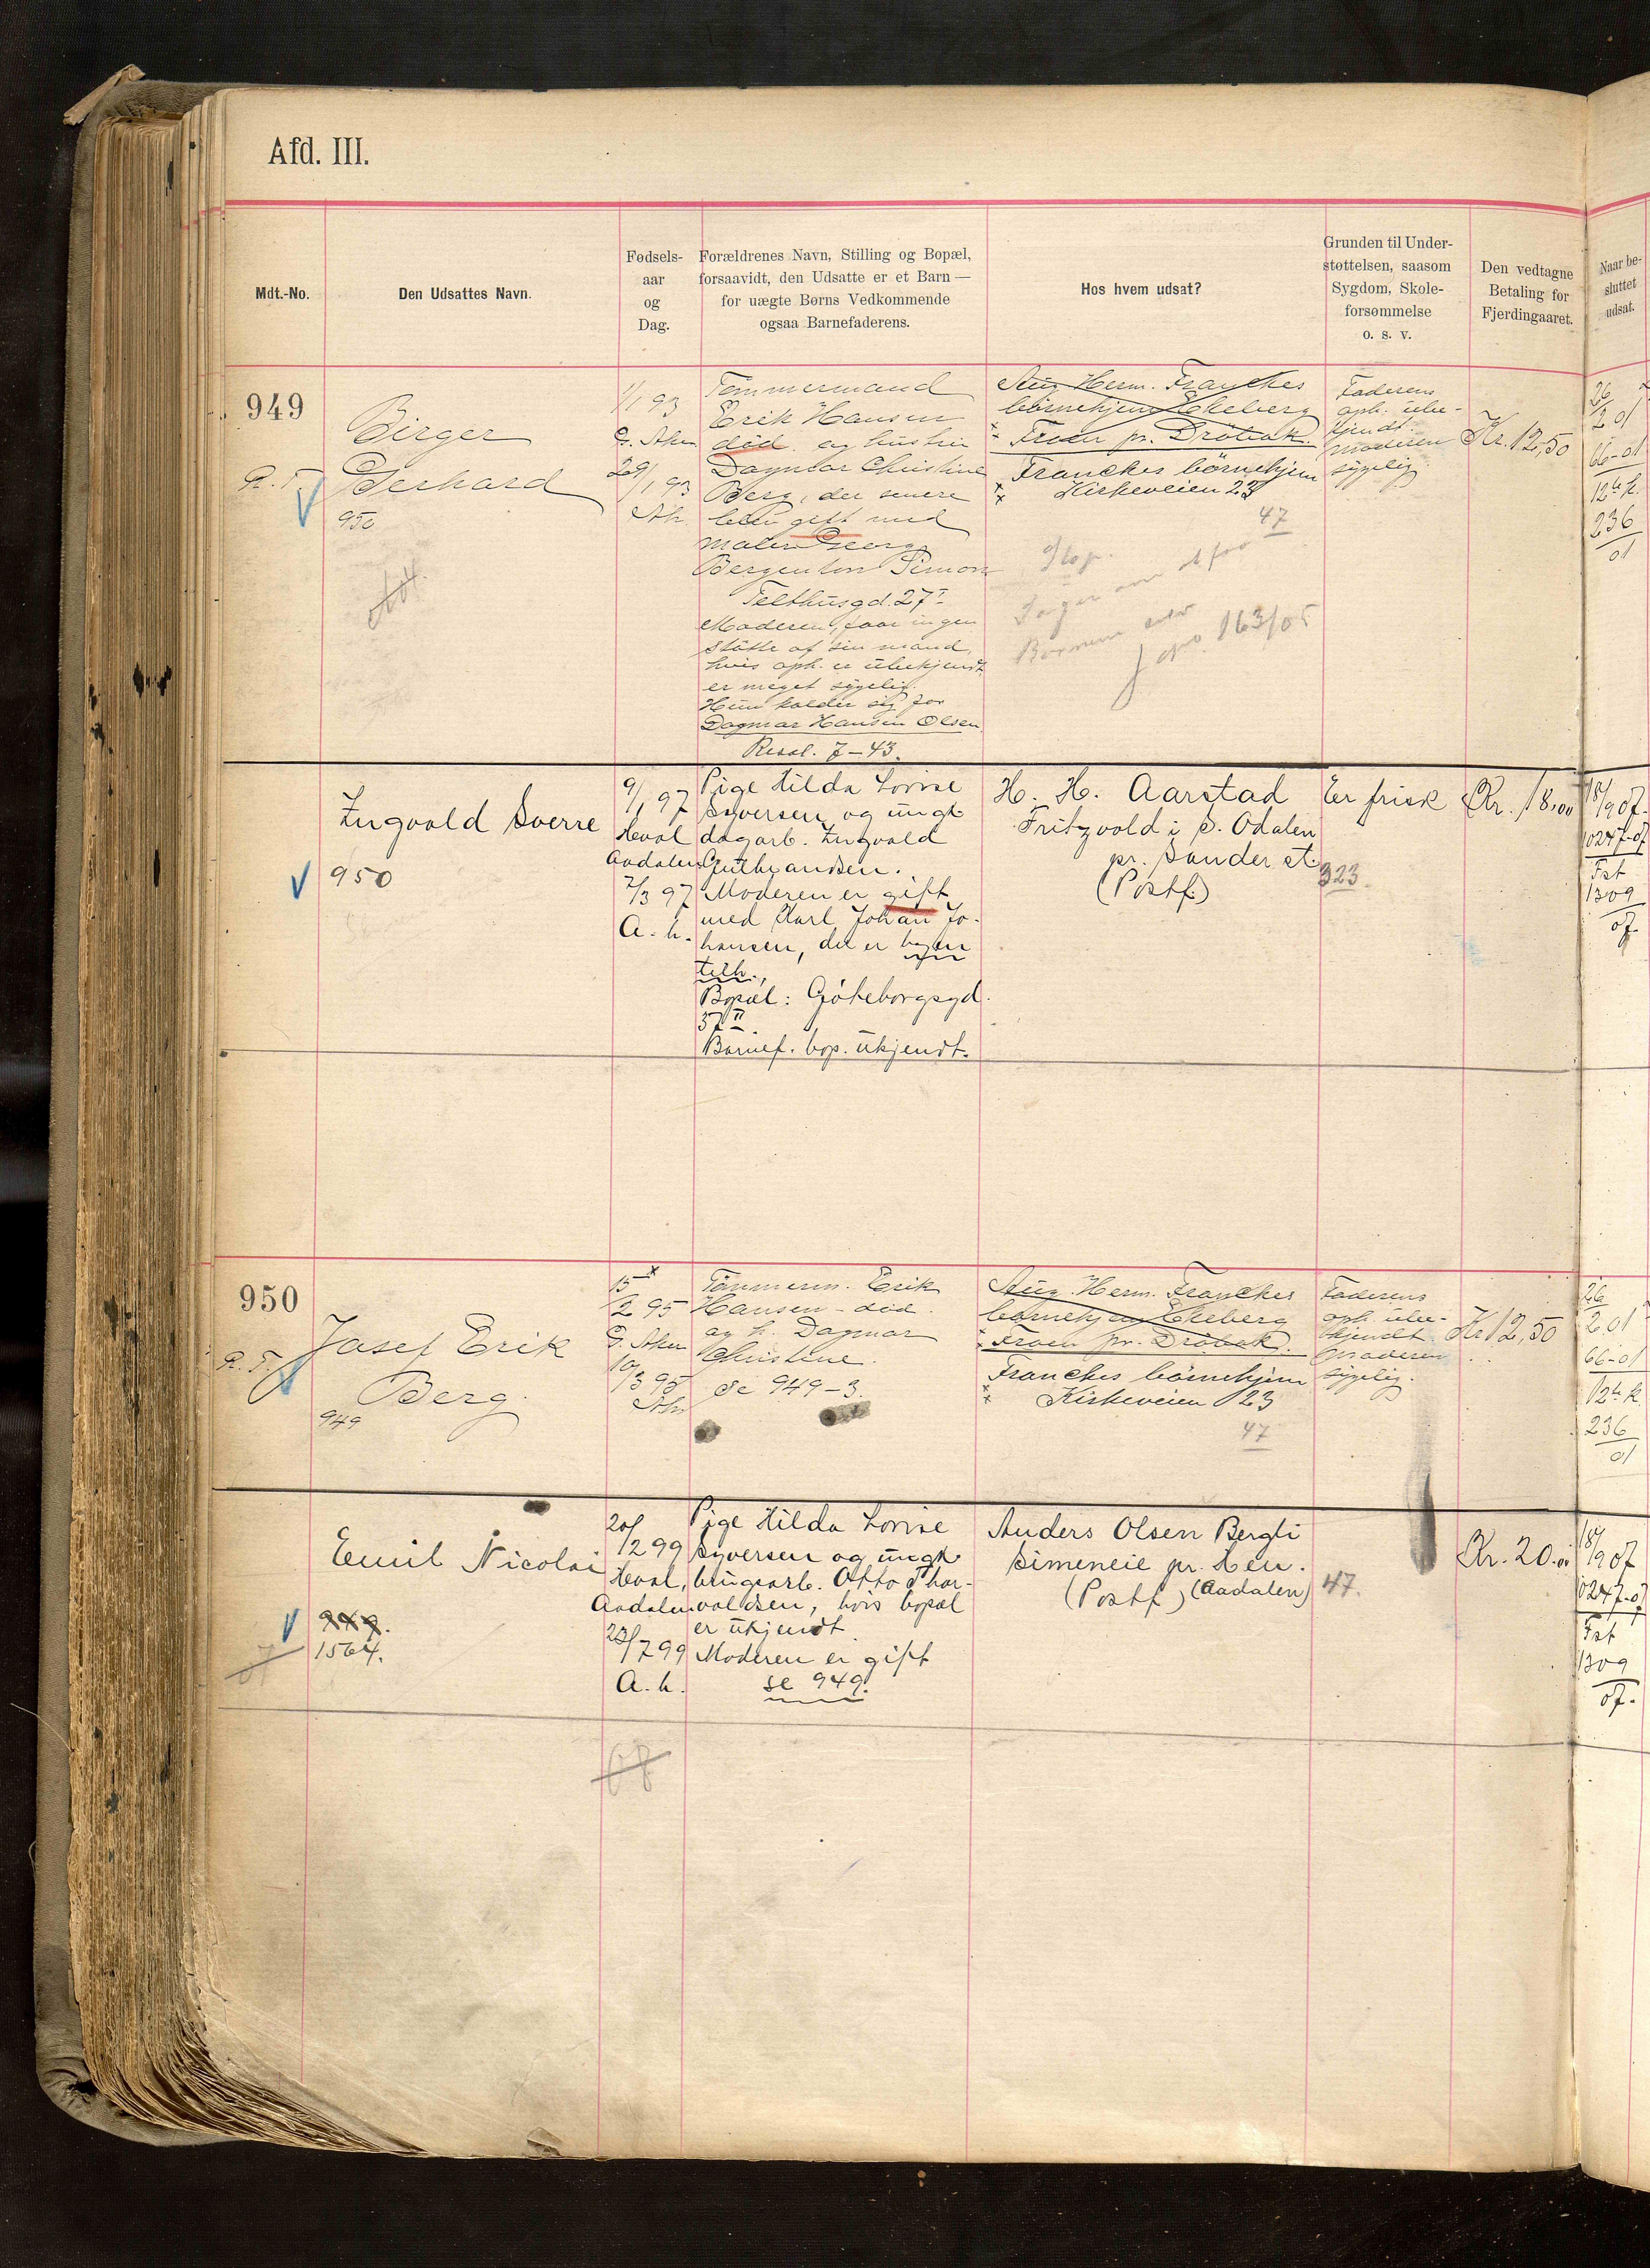 Afd. III.
Mdt.-No.
Den Udsattes Navn.
Fødsels-
aar
og
Dag.
Forældrenes Navn, Stilling og Bopæl,
forsaavidt, den Udsatte er et Barn —
for uægte Børns Vedkommende
ogsaa Barnefaderens.
Hos hvem udsat?
Grunden til Under-
støttelsen, saasom
Sygdom, Skole-
forsømmelse
o. s. v.
Den vedtagne
Betaling for
Fjerdingaaret.
Naar be-
sluttet
udsat.
949
Birger
Gerhard
950
1/1 93
G. Aker
29/1 93
Ak.
Tømmermand
Erik Hansen
död og hustru
Dagmar Christine
Berg, der senere
blev gift med
maler Georg
Bergenton Simon
Telthusgd. 27 I
Moderen, faar ingen
støtte af sin mand,
hvis oph. er ubekjendt
er meget sygelig.
Hun kalder sig for
Dagmar Hansen Olsen
Resol. 7-43.
Aug. Herm. Franckes
börnehjem Ekeberg
Froen pr. Dröbak.
Franckes börnehjem
Kirkeveien 23
47
163/05
Faderens
oph. ube-
kjendt.
moderen
sygelig
Kr. 12,50
26/2 01
66-01
236
01
Ingvald Sverre
950
9/1 97
Heval
Aadalen
7/3 97
A. h.
Pige Hilda Lovise
Syversen og ungk.
dagarb. Ingvald
Gulbrandsen.
Moderen er gift
med Karl Johan Jo-
hansen, der er byen
tilh.,
Bopæl: Göteborgsgd.
37 II.
Barnef. bop. ukjendt.
H. H. Aarstad
Fritzvold i S. Odalen
pr. Sander st.
(Postf.)
323
Er frisk
Kr. 18.00
18/9 07.
10247-07
Fat
1309
07.
950
Josef Erik
Berg
949
15/2 95
G. Aker
10/3 95
Ak.
Tømmerm. Erik
Hansen - död.
og h. Dagmar
Christine.
Se 949-3.
Aug. Herm. Franckes
börnehjem Ekeberg
Froen pr. Dröbak.
Franckes börnehjem
Kirkeveien 23
47
Faderens
oph. ube-
kjendt
Moderen
sygelig.
Kr 12,50
26/2 01
66-01
236
01
Emil Nicolai
949.
1564.
20/12 99
Heval,
Aadalen
A. h.
Pige Hilda Lovise
Syversen og ungk.
brugsarb. Otto Thor-
valdsen, hvis bopæl
er ukjendt
Moderen er gift
se 949.
Anders Olsen Bergli
Simeneie pr. Hen.
(Postf) (Aadalen)
47.
Kr. 20.00
18/9 07
10247-07
Fat
1309
07.